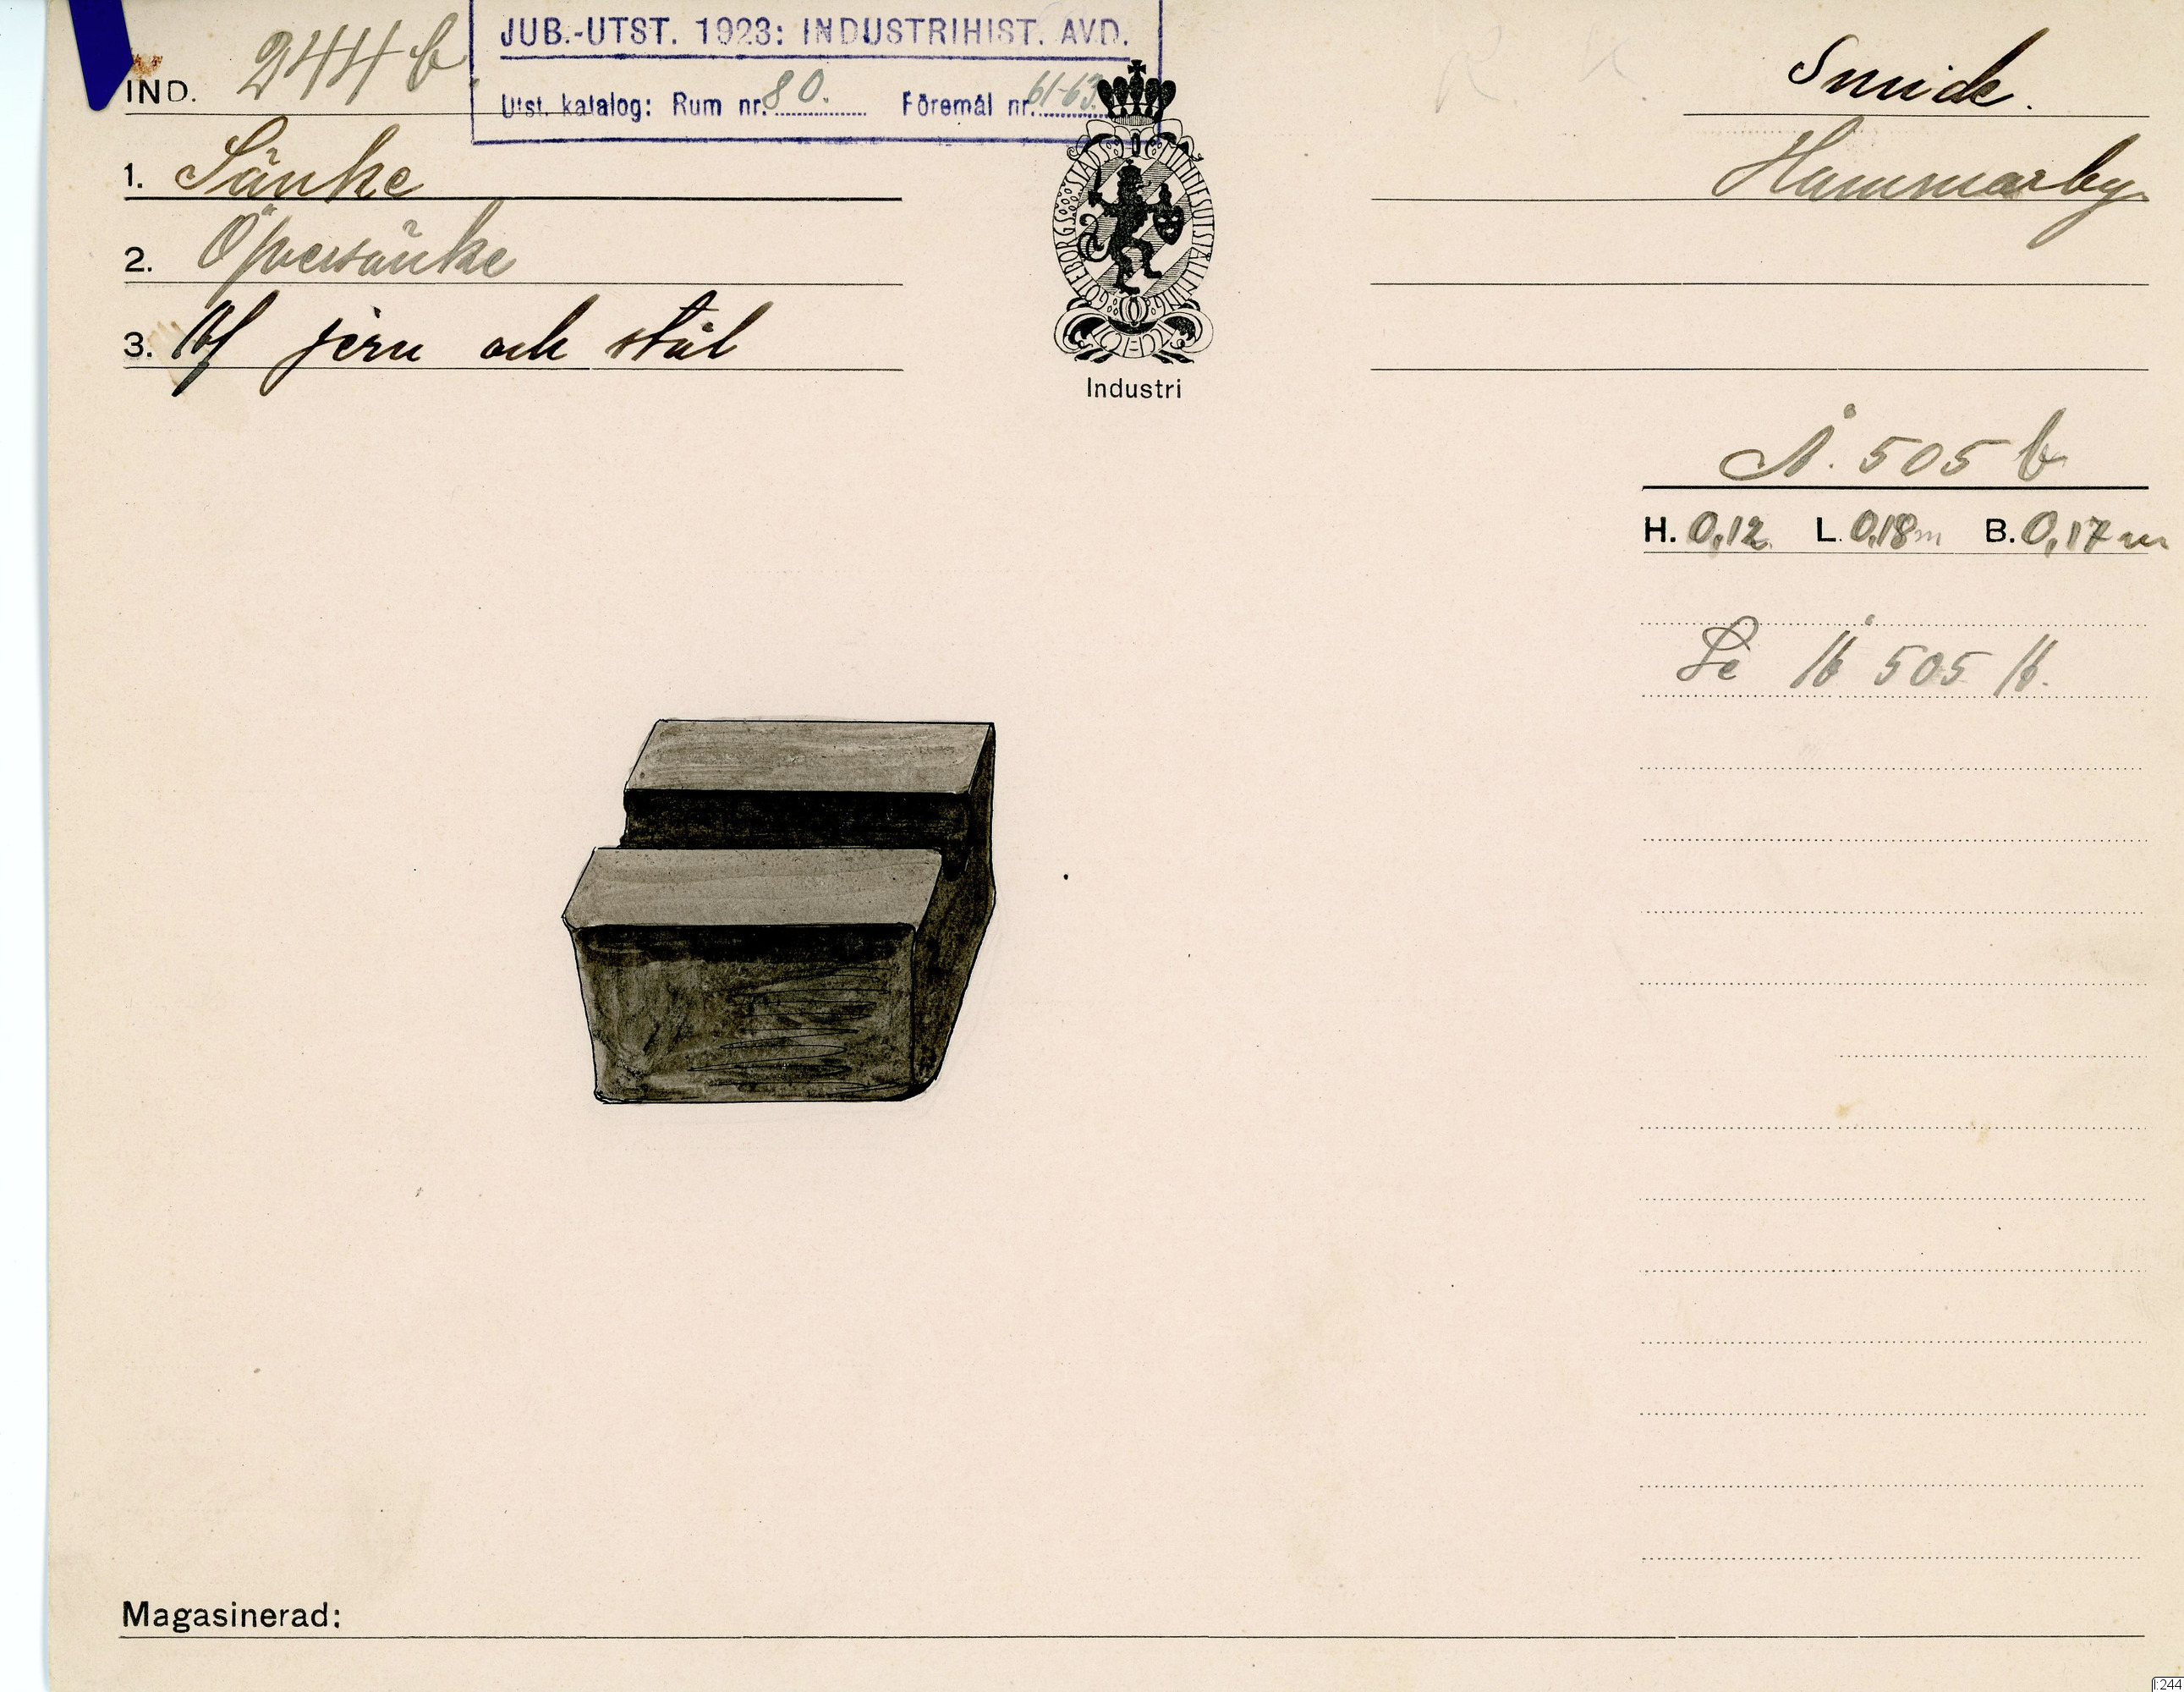 JUB.-UTST. 1923: INDUSTRIHIST. AVD.
Utst. katalog: Rum nr. 80. Föremål nr. 61-63.
IND. 244 b
Smide.
1. Sänke
Hammarby
2. Öfversänke
3. Af järn och stål
GÖTEBORGS STADS MINNESUTSTÄLLNING
Industri
Å. 505 b
H. 0,12 L. 0,18 m B. 0,17 m
Se Å 505 A.
Magasinerad:
I:244